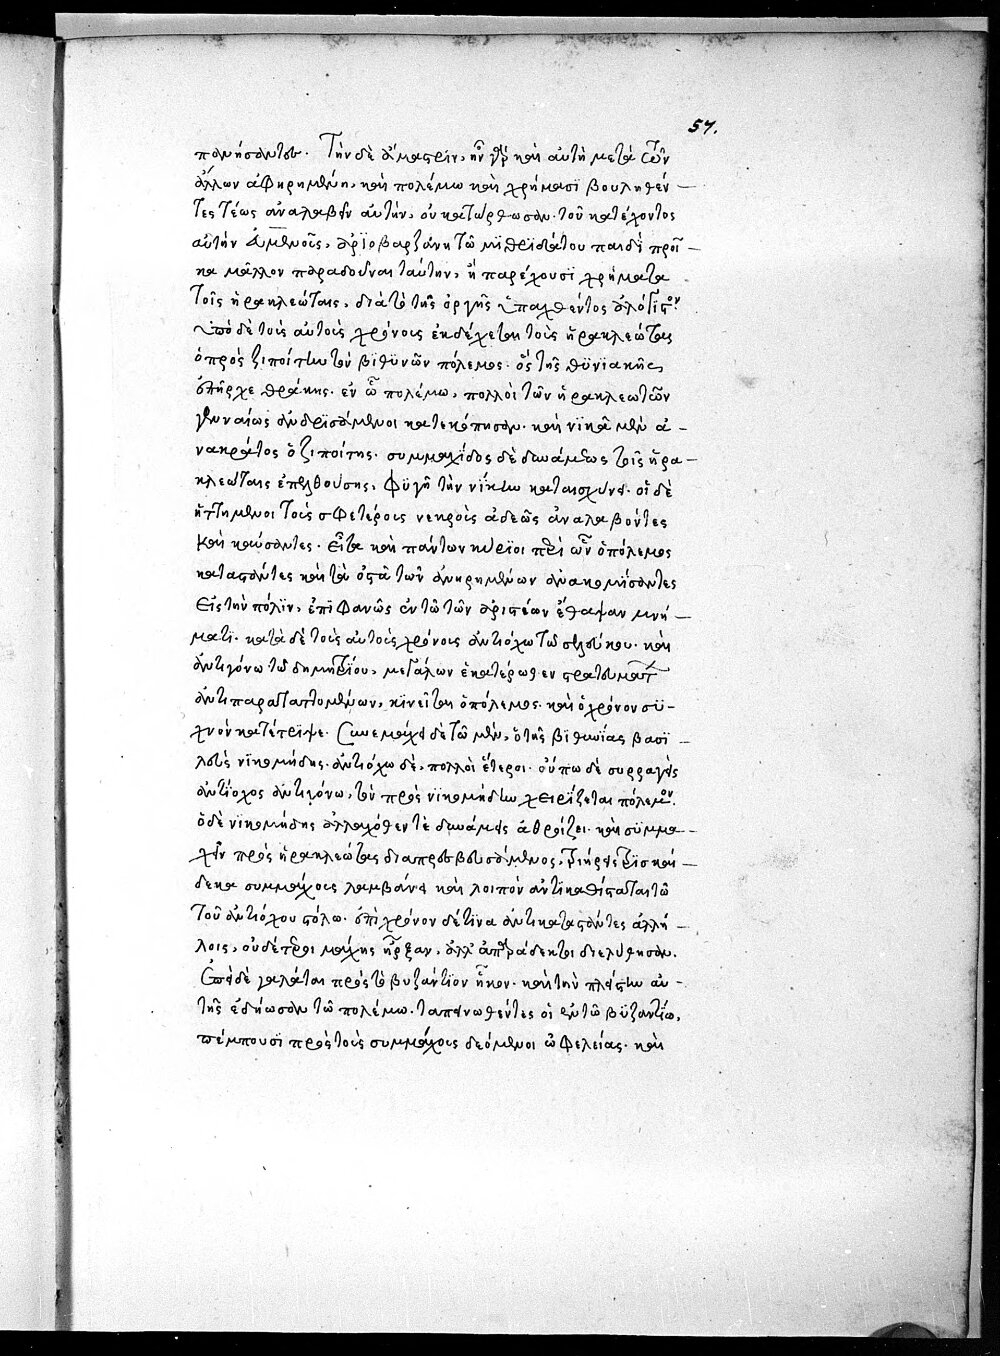 57.
πολιήσαντο. Τὴν δὲ ἄμαστριν, ἦν γὰρ καὶ αὐτὴ μετὰ τῶν
ἄλλων ἀφηρημένη, καὶ πολέμω καὶ χρήμασϊ βουληθέν –
τες τέως ἀναλαβεῖν αὐτήν, οὐ κατώρθωσαν. τοῦ κατέχοντος
αὐτὴν εὐμενοῦς, ἀρϊοβαρζάνη τῶ μϊθϊδάτου παιδὶ προῖ –
κα μᾶλλον παραδοῦναι ταύτην, ἢ παρέχουσϊ χρήματα
τοῖς ἡρακλεώταις, διὰ τὸ τῆς ὀργῆς ἐπαχθέντος ἀλόγιστον.
ὑπὸ δὲ τοὺς αὐτοὺς χρόνους ἐκδέχεται τοὺς ἡρακλεώτας
ὁ πρὸς ζιποίτην τὸν βϊθϋνῶν πόλεμος. ὃς τῆς θϋνϊακῆς
ἐπῆρχε θράκης. ἐν ὧ πολέμω, πολλοὶ τῶν ἡρακλεωτῶν
γενναίως ἀνδρϊσάμενοι κατεκόπησαν. καὶ νϊκᾶ μὲν ἀ –
νακράτος ὁ ζιποίτης. συμμαχίδος δὲ δυνάμεως τοῖς ἡρα –
κλεώταις ἐπελθούσης, φϋγῆ τὴν νίκην καταισχύνει. οἱ δὲ
ἡττημένοι τοὺς σφετέρους νεκροὺς ἀδεῶς ἀναλαβόντες
καὶ καύσαντες. εἶτα καὶ πάντων κύρϊοι περὶ ὧν ὁ πόλεμος
καταστάντες καὶ τὰ ὀστᾶ τῶν ἀνηρημένων ἀνακομίσαντες
εἰς τὴν πόλϊν, ἐπϊφανῶς ἐν τῶ τῶν ἀριστέων ἔθαψαν μνή –
ματϊ. κατὰ δὲ τοὺς αὐτοὺς χρόνους ἀντιόχω τῶ σελεύκου. καὶ
ἀντιγόνω τῶ δημητρίου, μεγάλων ἑκατέρωθεν στρατευμάτ
ἀντιπαραταττομένων, κϊνεῖται ὁ πόλεμος. καὶ ὁ χρόνον σϋ –
χνὸν κατέτρϊψε. Συνεμάχει δὲ τῶ μὲν, ὁ τῆς βϊθυνίας βασϊ –
λεὺς νϊκομήδης. ἀντιόχω δὲ, πολλοὶ ἕτεροι. οὕπω δὲ συρραγεὶς
ἀντίοχος ἀντιγόνω, τὸν πρὸς νϊκομήδην χειρίζεται πόλεμον.
ὁ δὲ νϊκομήδης ἀλλαχόθεν τὲ δυνάμεις ἀθροίζει. καὶ σϋμμα –
χεῖν πρὸς ἡρακλεώτας διαπρεσβευσάμενος, τριήρεις τρϊσκαί –
δεκα συμμάχους λαμβάνει καὶ λοιπὸν ἀντικαθίσταται τῶ
τοῦ ἀντιόχου στόλω. ἐπὶ χρόνον δέ τϊνα ἀντικαταστάντες ἀλλή –
λοις, οὐδέτεροι μάχης ἦρξαν, ἀλλ' ἄπρακτοι διελύθησαν.
Ἐπεὶ δὲ γαλάται πρὸς τὸ βυζάντϊον ἧκον. καὶ τὴν πλείστην αὐ –
τῆς ἐδήωσαν τῶ πολέμω. ταπεινωθέντες οἱ ἐν τῶ βϋζαντίω,
πέμπουσϊ πρὸς τοὺς συμμάχους δεόμενοι ὠφελείας. καὶ